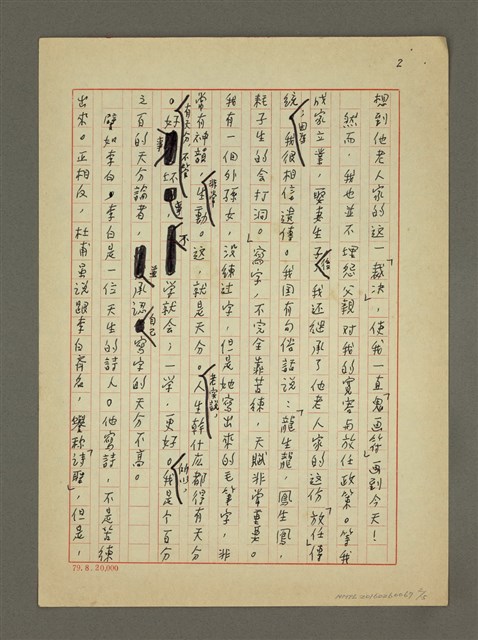 2
想到他老人家的這一「裁決」，使我一直「鬼画符」画到今天！
然而，我也並不埋怨父親对我的寬容与放任政策。等我
成家立業，娶妻生子，我还継承了他老人家的这份「放任」傳
統。因為我很相信遺傳。我国有句俗話說：「龍生龍，鳳生鳳，
耗子生的会打洞。」寫字，不完全靠苦練，天賦非常重要。
我有一個外孫女，没練过字，但是她寫出來的毛筆字，非
常有神韻，生動。这，就是天分。老实說，人生幹什広都得有天分
。有天分，不學就会；一学，更好。所以，我是个百分
之百的天分論者，並承認自己寫字的天分不高。
譬如李白，李白是一位天生的詩人。他寫詩，不是苦練
出來。正相反，杜甫虽說跟李白齊名，譽称「詩聖」，但是，
79.8.20,000